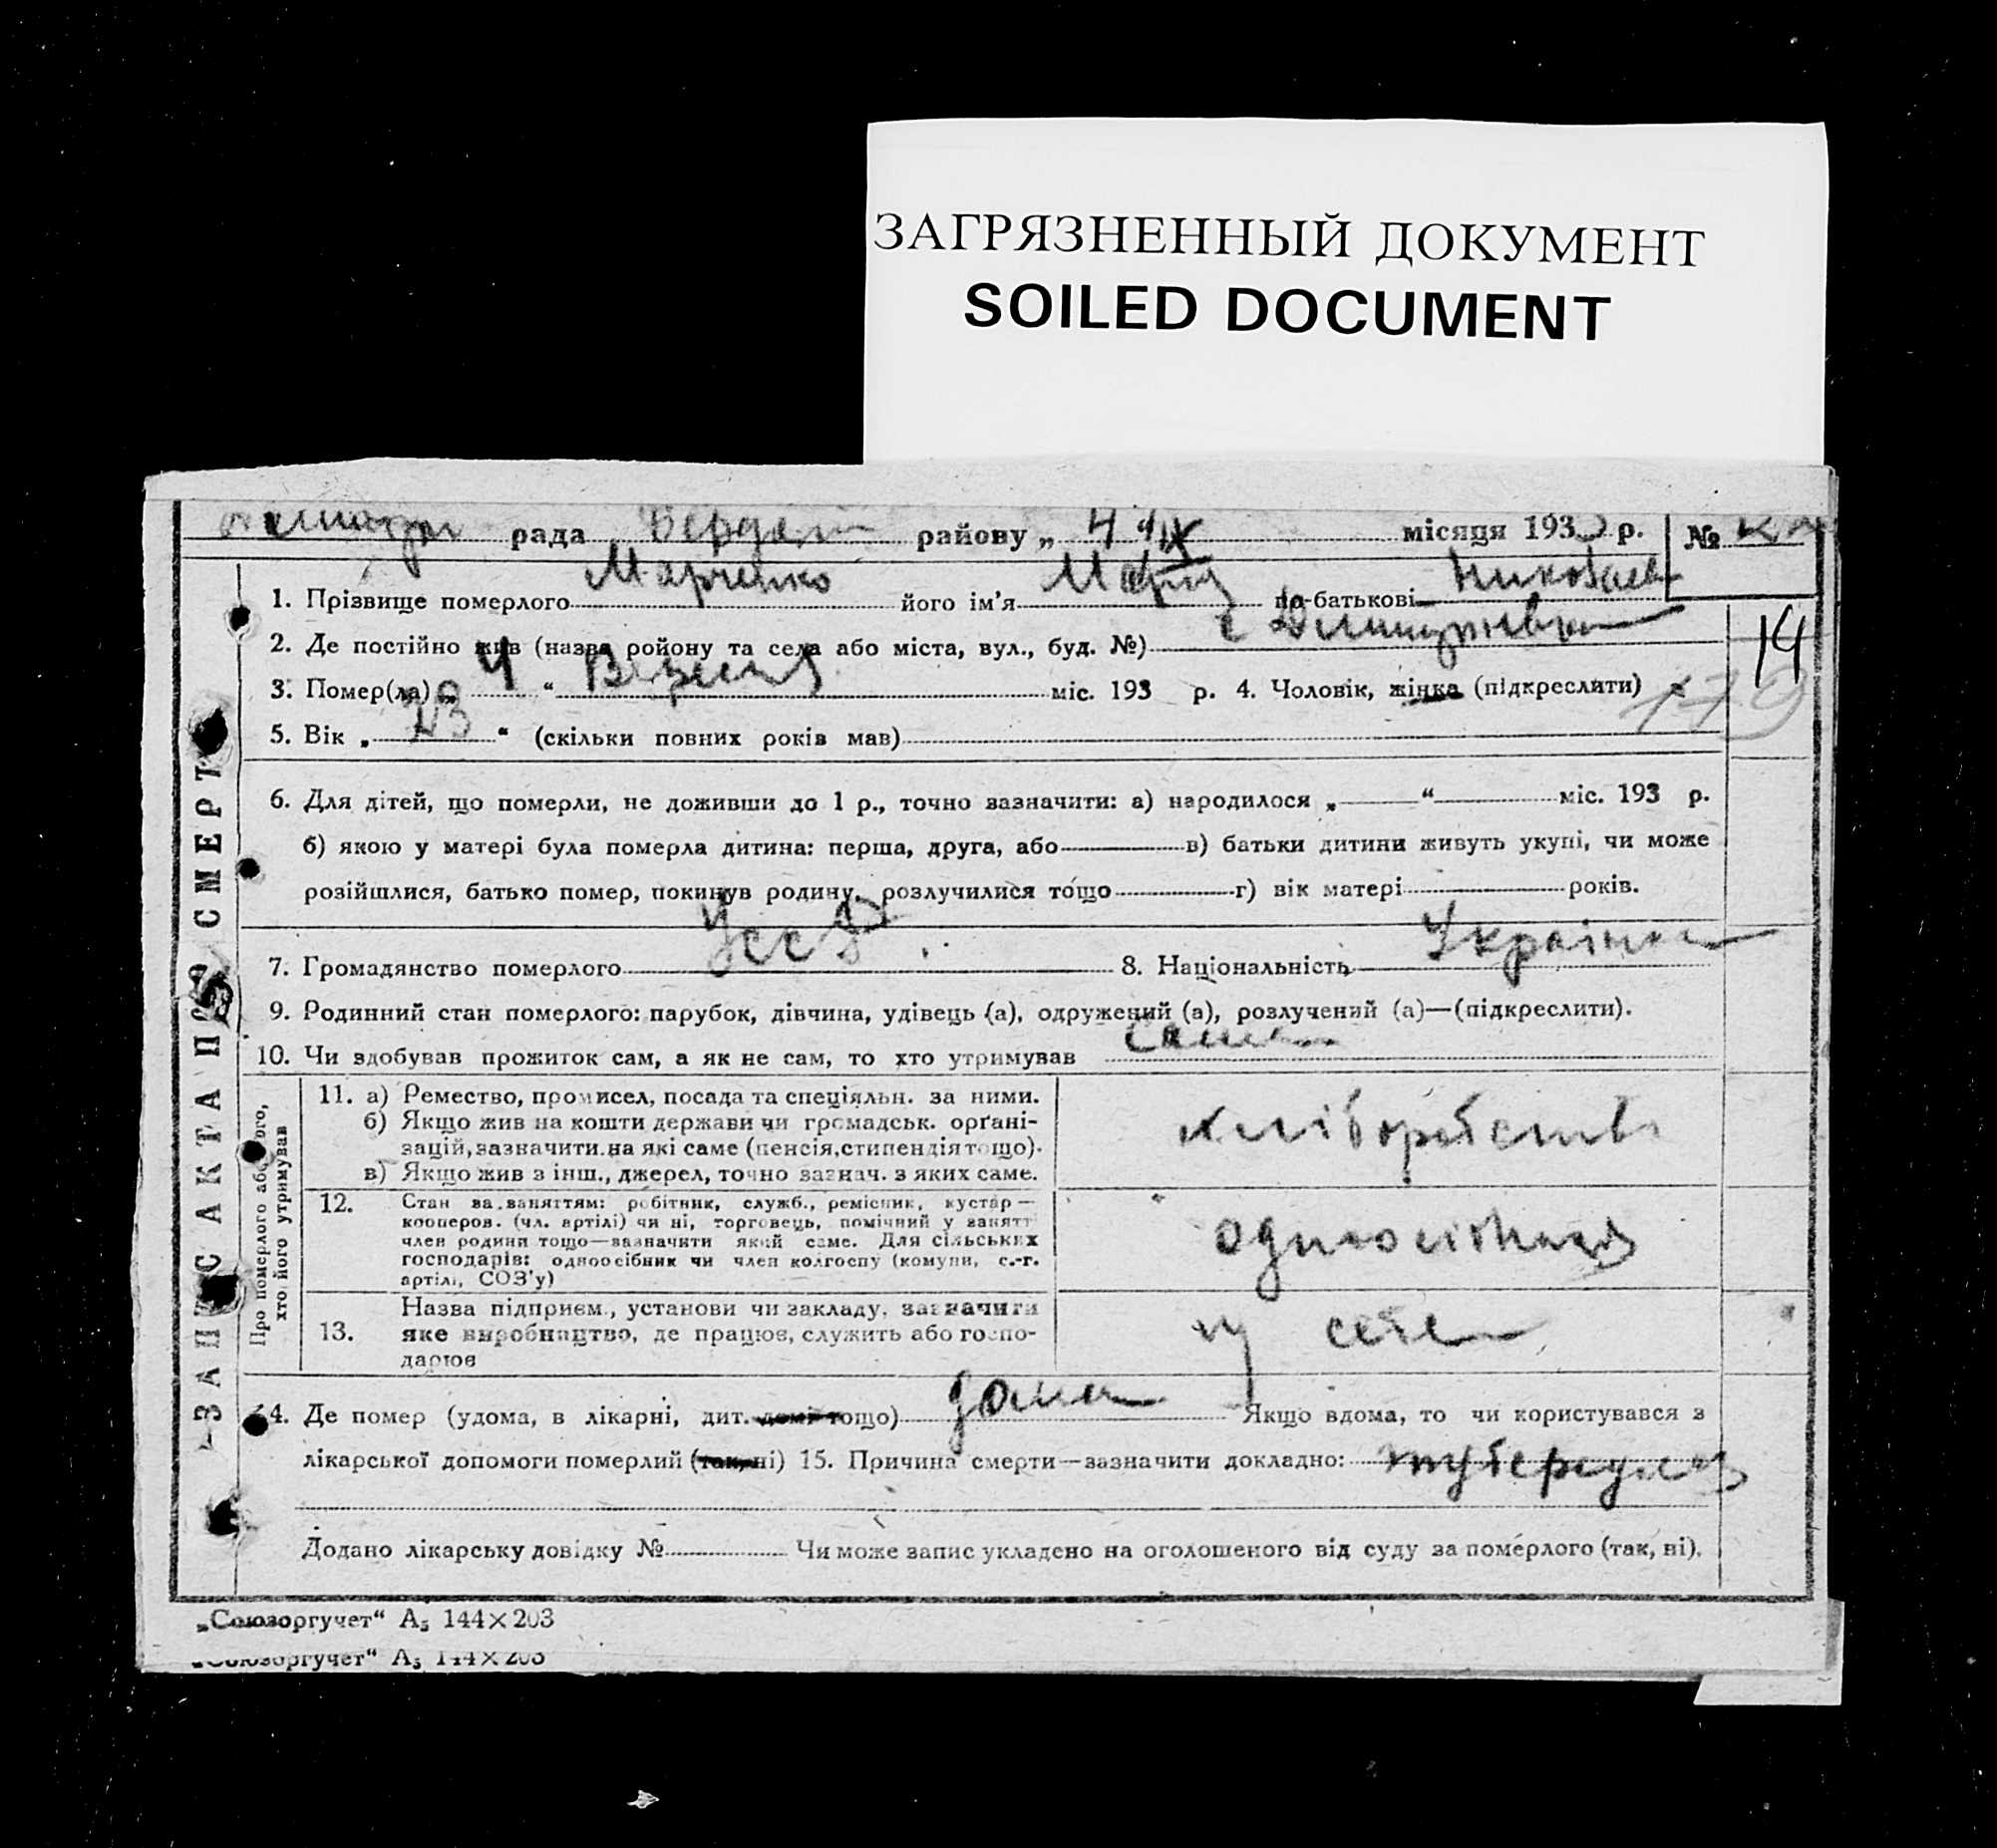 ЗАГРЯЗНЕННЫЙ ДОКУМЕНТ
SOILED DOCUMENT
рада район у „ 4 " IX місяця 193 р. №
1. Прізвище померлого Марченко його ім'я по-батькові
2. Де постійно жив (назва ройону та села або міста, вул., буд. №) с
3. Помер(ла) „ 4 “ міс. 193 р. 4. Чоловік, жінка (підкреслити)
14
179
5. Вік „ “ (скільки повних років мав)
6. Для дітей, що померли, не доживши до 1 р., точно зазначити: а) народилося „ “ міс. 193 р.
б) якою у матері була померла дитина: перша, друга, або в) батьки дитини живуть укупі, чи може
розійшлися, батько помер, покинув родину, розлучилися тощо г) вік матері років.
7. Громадянство померлого УССР 8. Національність Українка
9. Родинний стан померлого: парубок, дівчина, удівець (а), одружений (а), розлучений (а)—(підкреслити).
10. Чи здобував прожиток сам, а як не сам, то хто утримував сама
ЗАПИС АКТА ПРО СМЕРТЬ
Про померлого або того, хто його утримував
11. а) Ремество, промисел, посада та спеціяльн. за ними.
б) Якщо жив на кошти держави чи громадськ. орґані-
зацій, зазначити на які саме (пенсія, стипендія тощо).
в) Якщо жив з інш., джерел, точно зазнач. з яких саме.
хліборобство
12. Стан за заняттям: робітник, служб., ремісник, кустар—
кооперов. (чл. артілі) чи ні, торговець, помічний у занятті
член родини тощо—зазначити який саме. Для сільських
господарів: одноосібник чи член колгоспу (комуни, с.-г.
артілі, СОЗ'у)
одноосібниця
13. Назва підприєм., установи чи закладу, зазначити
яке виробництво, де працює, служить або госпо-
дарює
у себе
14. Де помер (удома, в лікарні, дит. домі тощо) дома Якщо вдома, то чи користувався з
лікарської допомоги померлий (так, ні) 15. Причина смерти—зазначити докладно: туберкулез
Додано лікарську довідку № Чи може запис укладено на оголошеного від суду за померлого (так, ні).
„Союзоргучет“ А₅ 144×203
„Союзоргучет“ А₅ 144×203